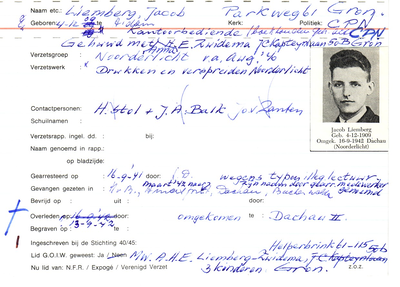 Naam etc.: Liemberg, Jacob Parkweg 61 Gron.
Geboren: 4.12. te Politiek: CPN
Kantoorbediende CPN
Gehuwd met A.H.E. Zuidema, J.C. Kapteynlaan 50B Gron
Verzetsgroep : Noorderlicht v.a. Aug. '40
Verzetswerk : Drukken en verspreiden Noorderlicht
Contactpersonen: H. Stol + J.A. Balk, Jo v. Zanten
Schuilnamen :
Verzetsrapp. ingel. dd. : bij:
Naam genoemd in rapp. :
op bladzijde:
Jacob Liemberg
Geb. 4-12-1909
Omgek. 16-9-1942 Dachau
(Noorderlicht)
Gearresteerd op : 16.9.41 door: S.D. wegens illg lectuur
Gevangen gezeten in : maart '42 naar Dachau, Buchenwald
Bevrijd op : uit : door:
Overleden op : door: omgekomen te : Dachau III.
Begraven op : 13-9-42 te :
Ingeschreven bij de Stichting 40/45: Helperbrink 61-115
Lid G.O.I.W. geweest: Ja / Neen Mw. A.H.E. Liemberg-Zuidema, J.C. Kapteynlaan 50b
Nu lid van: N.F.R. / Expogé / Verenigd Verzet 3 kinderen. Gron. z.o.z.